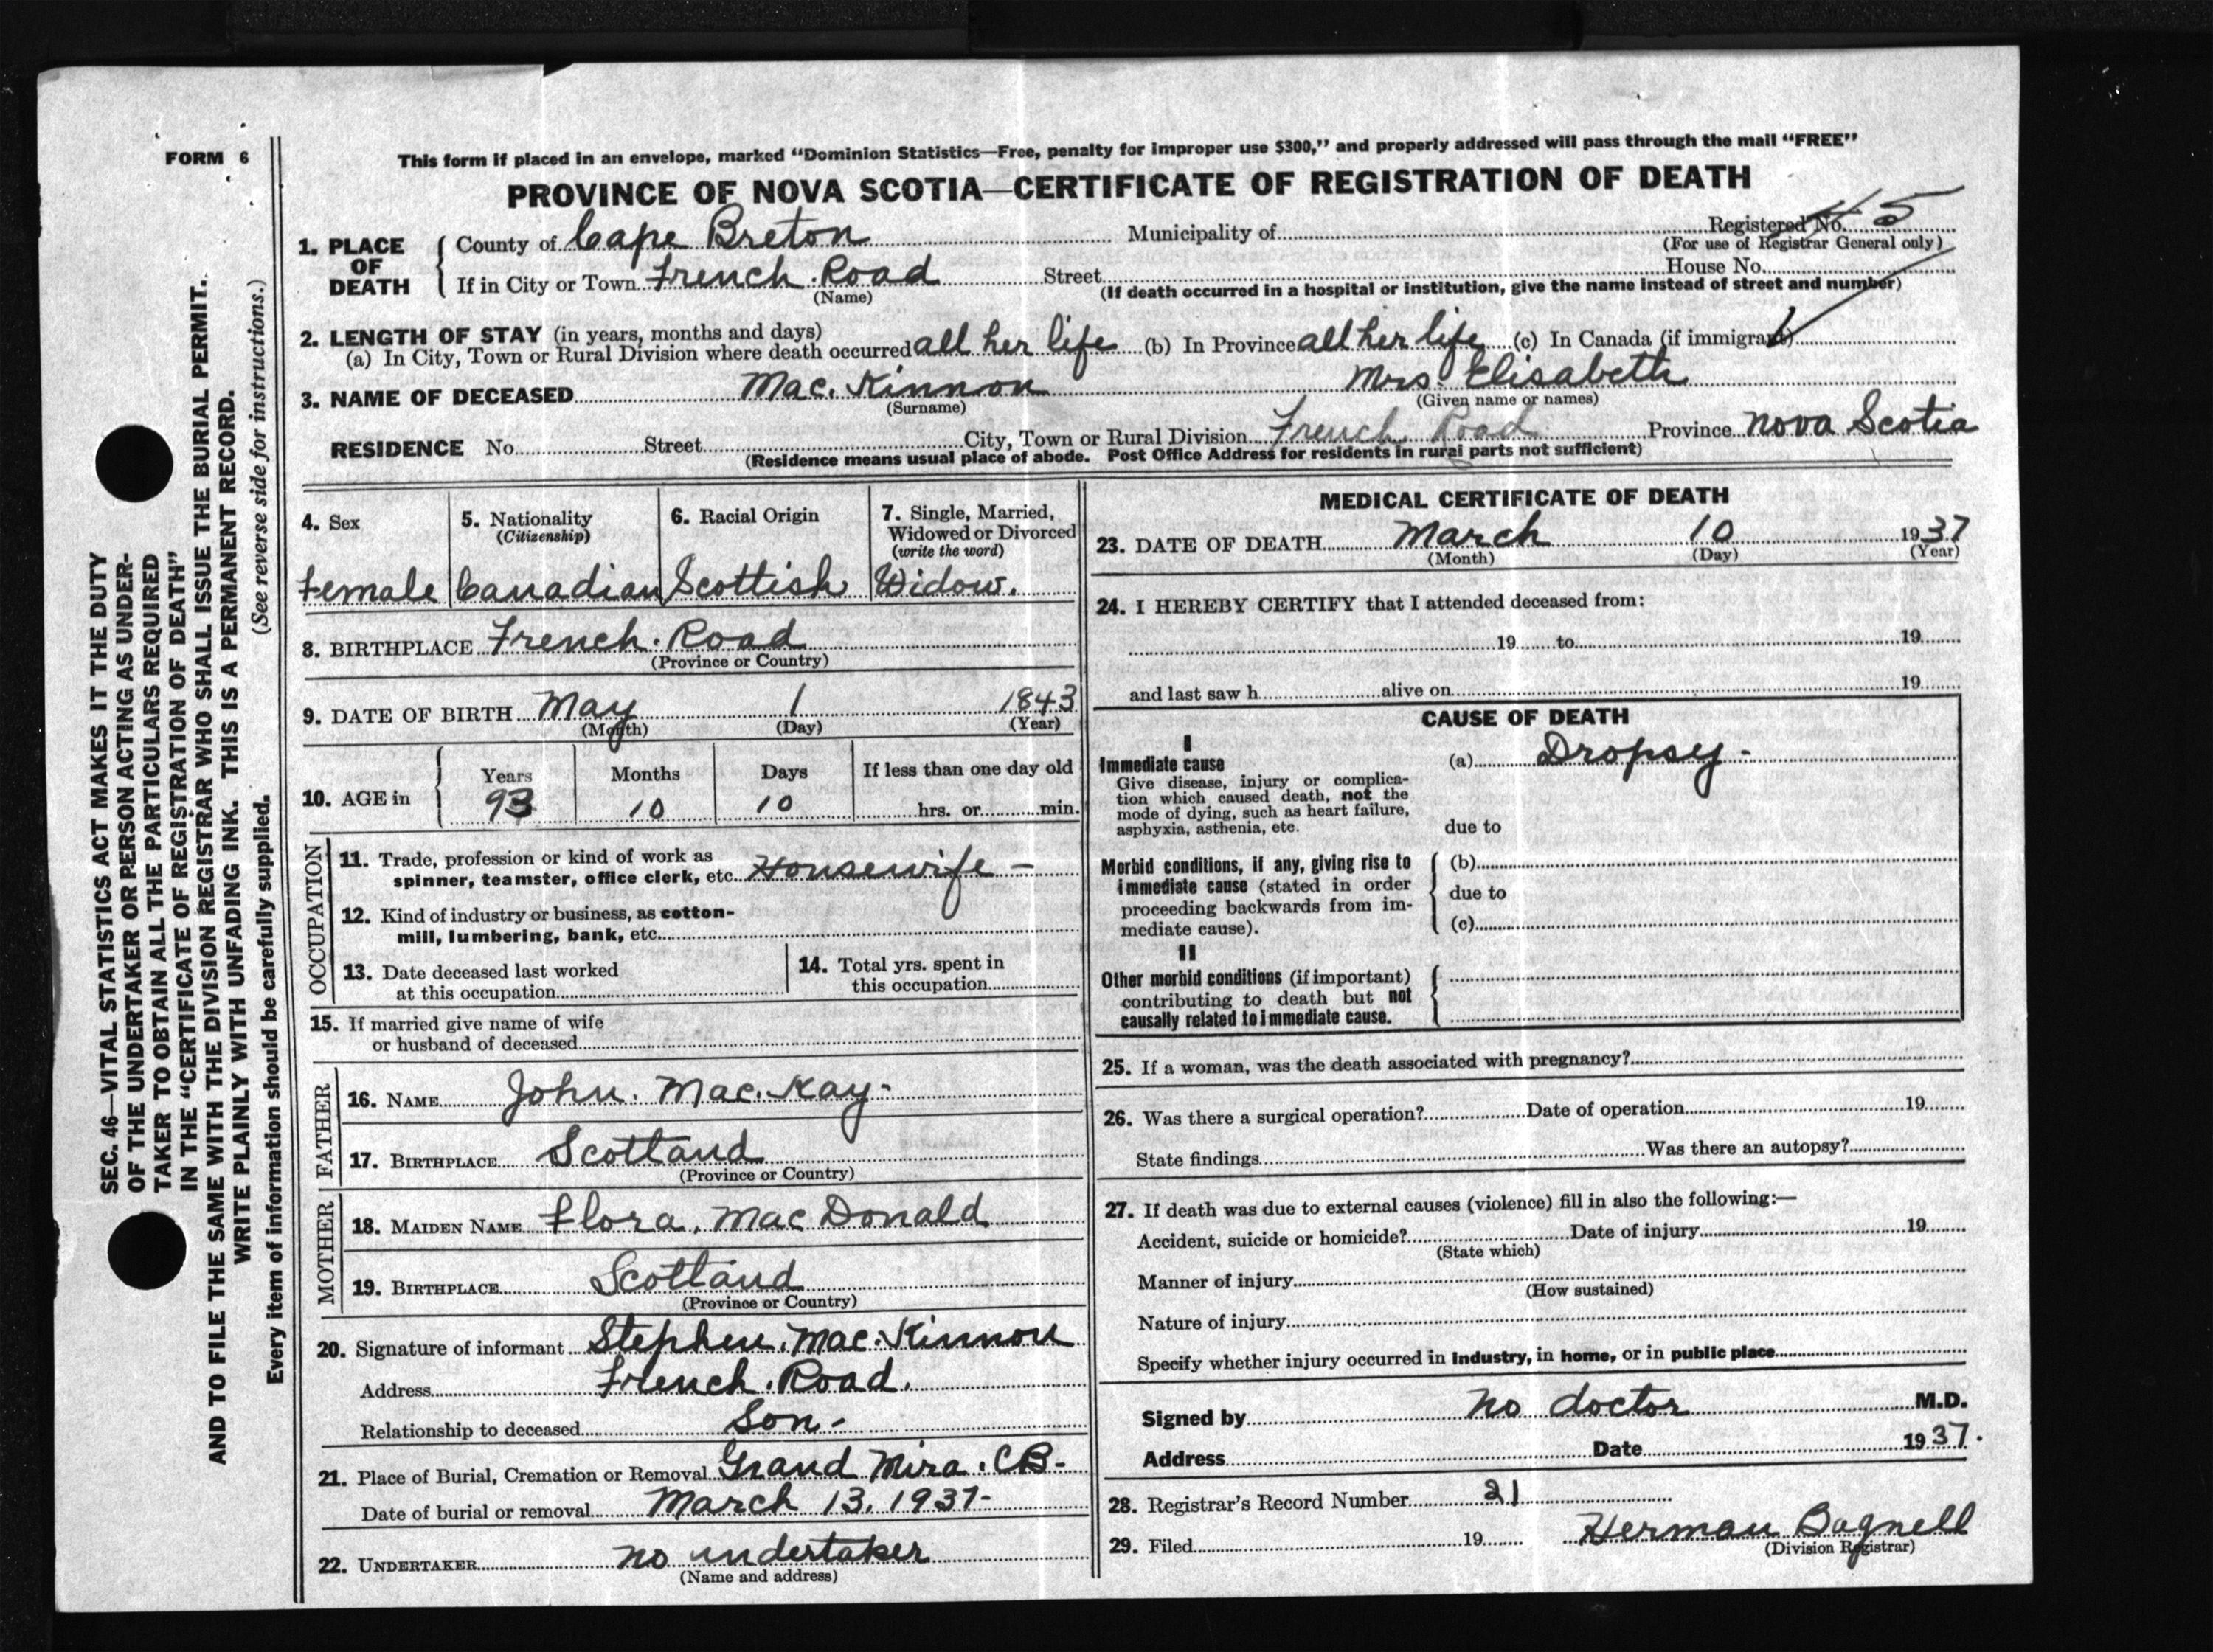 FORM 6
This form if placed in an envelope, marked "Dominion Statistics—Free, penalty for improper use $300," and properly addressed will pass through the mail "FREE"
PROVINCE OF NOVA SCOTIA—CERTIFICATE OF REGISTRATION OF DEATH
1. PLACE OF DEATH
County of Cape Breton Municipality of Registered No. 45
(For use of Registrar General only)
If in City or Town French Road Street House No.
(Name) (If death occurred in a hospital or institution, give the name instead of street and number)
2. LENGTH OF STAY (in years, months and days)
(a) In City, Town or Rural Division where death occurred all her life (b) In Province all her life (c) In Canada (if immigrant)
3. NAME OF DECEASED Mac. Kinnon Mrs. Elisabeth
(Surname) (Given name or names)
RESIDENCE No. Street City, Town or Rural Division French Road Province Nova Scotia
(Residence means usual place of abode. Post Office Address for residents in rural parts not sufficient)
4. Sex
Female
5. Nationality
(Citizenship)
Canadian
6. Racial Origin
Scottish
7. Single, Married,
Widowed or Divorced
(write the word)
Widow.
8. BIRTHPLACE French. Road
(Province or Country)
9. DATE OF BIRTH May 1 1843
(Month) (Day) (Year)
10. AGE in
Years Months Days If less than one day old
93 10 10 hrs. or min.
OCCUPATION
11. Trade, profession or kind of work as
spinner, teamster, office clerk, etc. Housewife -
12. Kind of industry or business, as cotton-
mill, lumbering, bank, etc.
13. Date deceased last worked
at this occupation
14. Total yrs. spent in
this occupation
15. If married give name of wife
or husband of deceased
FATHER
16. NAME John. Mac. Kay-
17. BIRTHPLACE Scotland
(Province or Country)
MOTHER
18. MAIDEN NAME Flora, Mac Donald
19. BIRTHPLACE Scotland
(Province or Country)
20. Signature of informant Stephen. Mac. Kinnon
Address French. Road.
Relationship to deceased Son-
21. Place of Burial, Cremation or Removal Grand Mira. CB-
Date of burial or removal March 13. 1937-
22. UNDERTAKER no undertaker
(Name and address)
MEDICAL CERTIFICATE OF DEATH
23. DATE OF DEATH March 10 1937
(Month) (Day) (Year)
24. I HEREBY CERTIFY that I attended deceased from:
19 to 19
and last saw h alive on 19
CAUSE OF DEATH
I
Immediate cause
Give disease, injury or complica-
tion which caused death, not the
mode of dying, such as heart failure,
asphyxia, asthenia, etc.
(a) Dropsy-
due to
Morbid conditions, if any, giving rise to
immediate cause (stated in order
proceeding backwards from im-
mediate cause).
(b)
due to
(c)
II
Other morbid conditions (if important)
contributing to death but not
causally related to immediate cause.
25. If a woman, was the death associated with pregnancy?
26. Was there a surgical operation? Date of operation 19
State findings Was there an autopsy?
27. If death was due to external causes (violence) fill in also the following:—
Accident, suicide or homicide? Date of injury 19
(State which)
Manner of injury
(How sustained)
Nature of injury
Specify whether injury occurred in industry, in home, or in public place
Signed by no doctor M.D.
Address Date 1937.
28. Registrar's Record Number 21
29. Filed 19 Herman Bagnell
(Division Registrar)
SEC. 46—VITAL STATISTICS ACT MAKES IT THE DUTY
OF THE UNDERTAKER OR PERSON ACTING AS UNDER-
TAKER TO OBTAIN ALL THE PARTICULARS REQUIRED
IN THE "CERTIFICATE OF REGISTRATION OF DEATH"
AND TO FILE THE SAME WITH THE DIVISION REGISTRAR WHO SHALL ISSUE THE BURIAL PERMIT.
WRITE PLAINLY WITH UNFADING INK. THIS IS A PERMANENT RECORD.
(See reverse side for instructions.)
Every item of information should be carefully supplied.